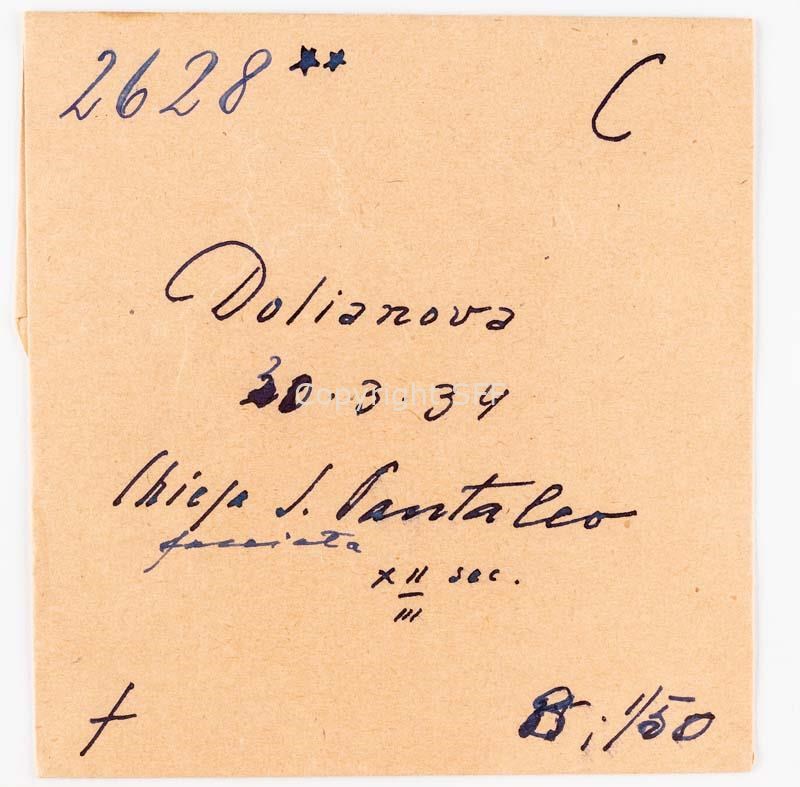 2628 ** C
Dolianova
30.3.39
Copyright SFF
Chiesa S. Pantaleo
facciata
XII sec.
III
f
8; 1/50